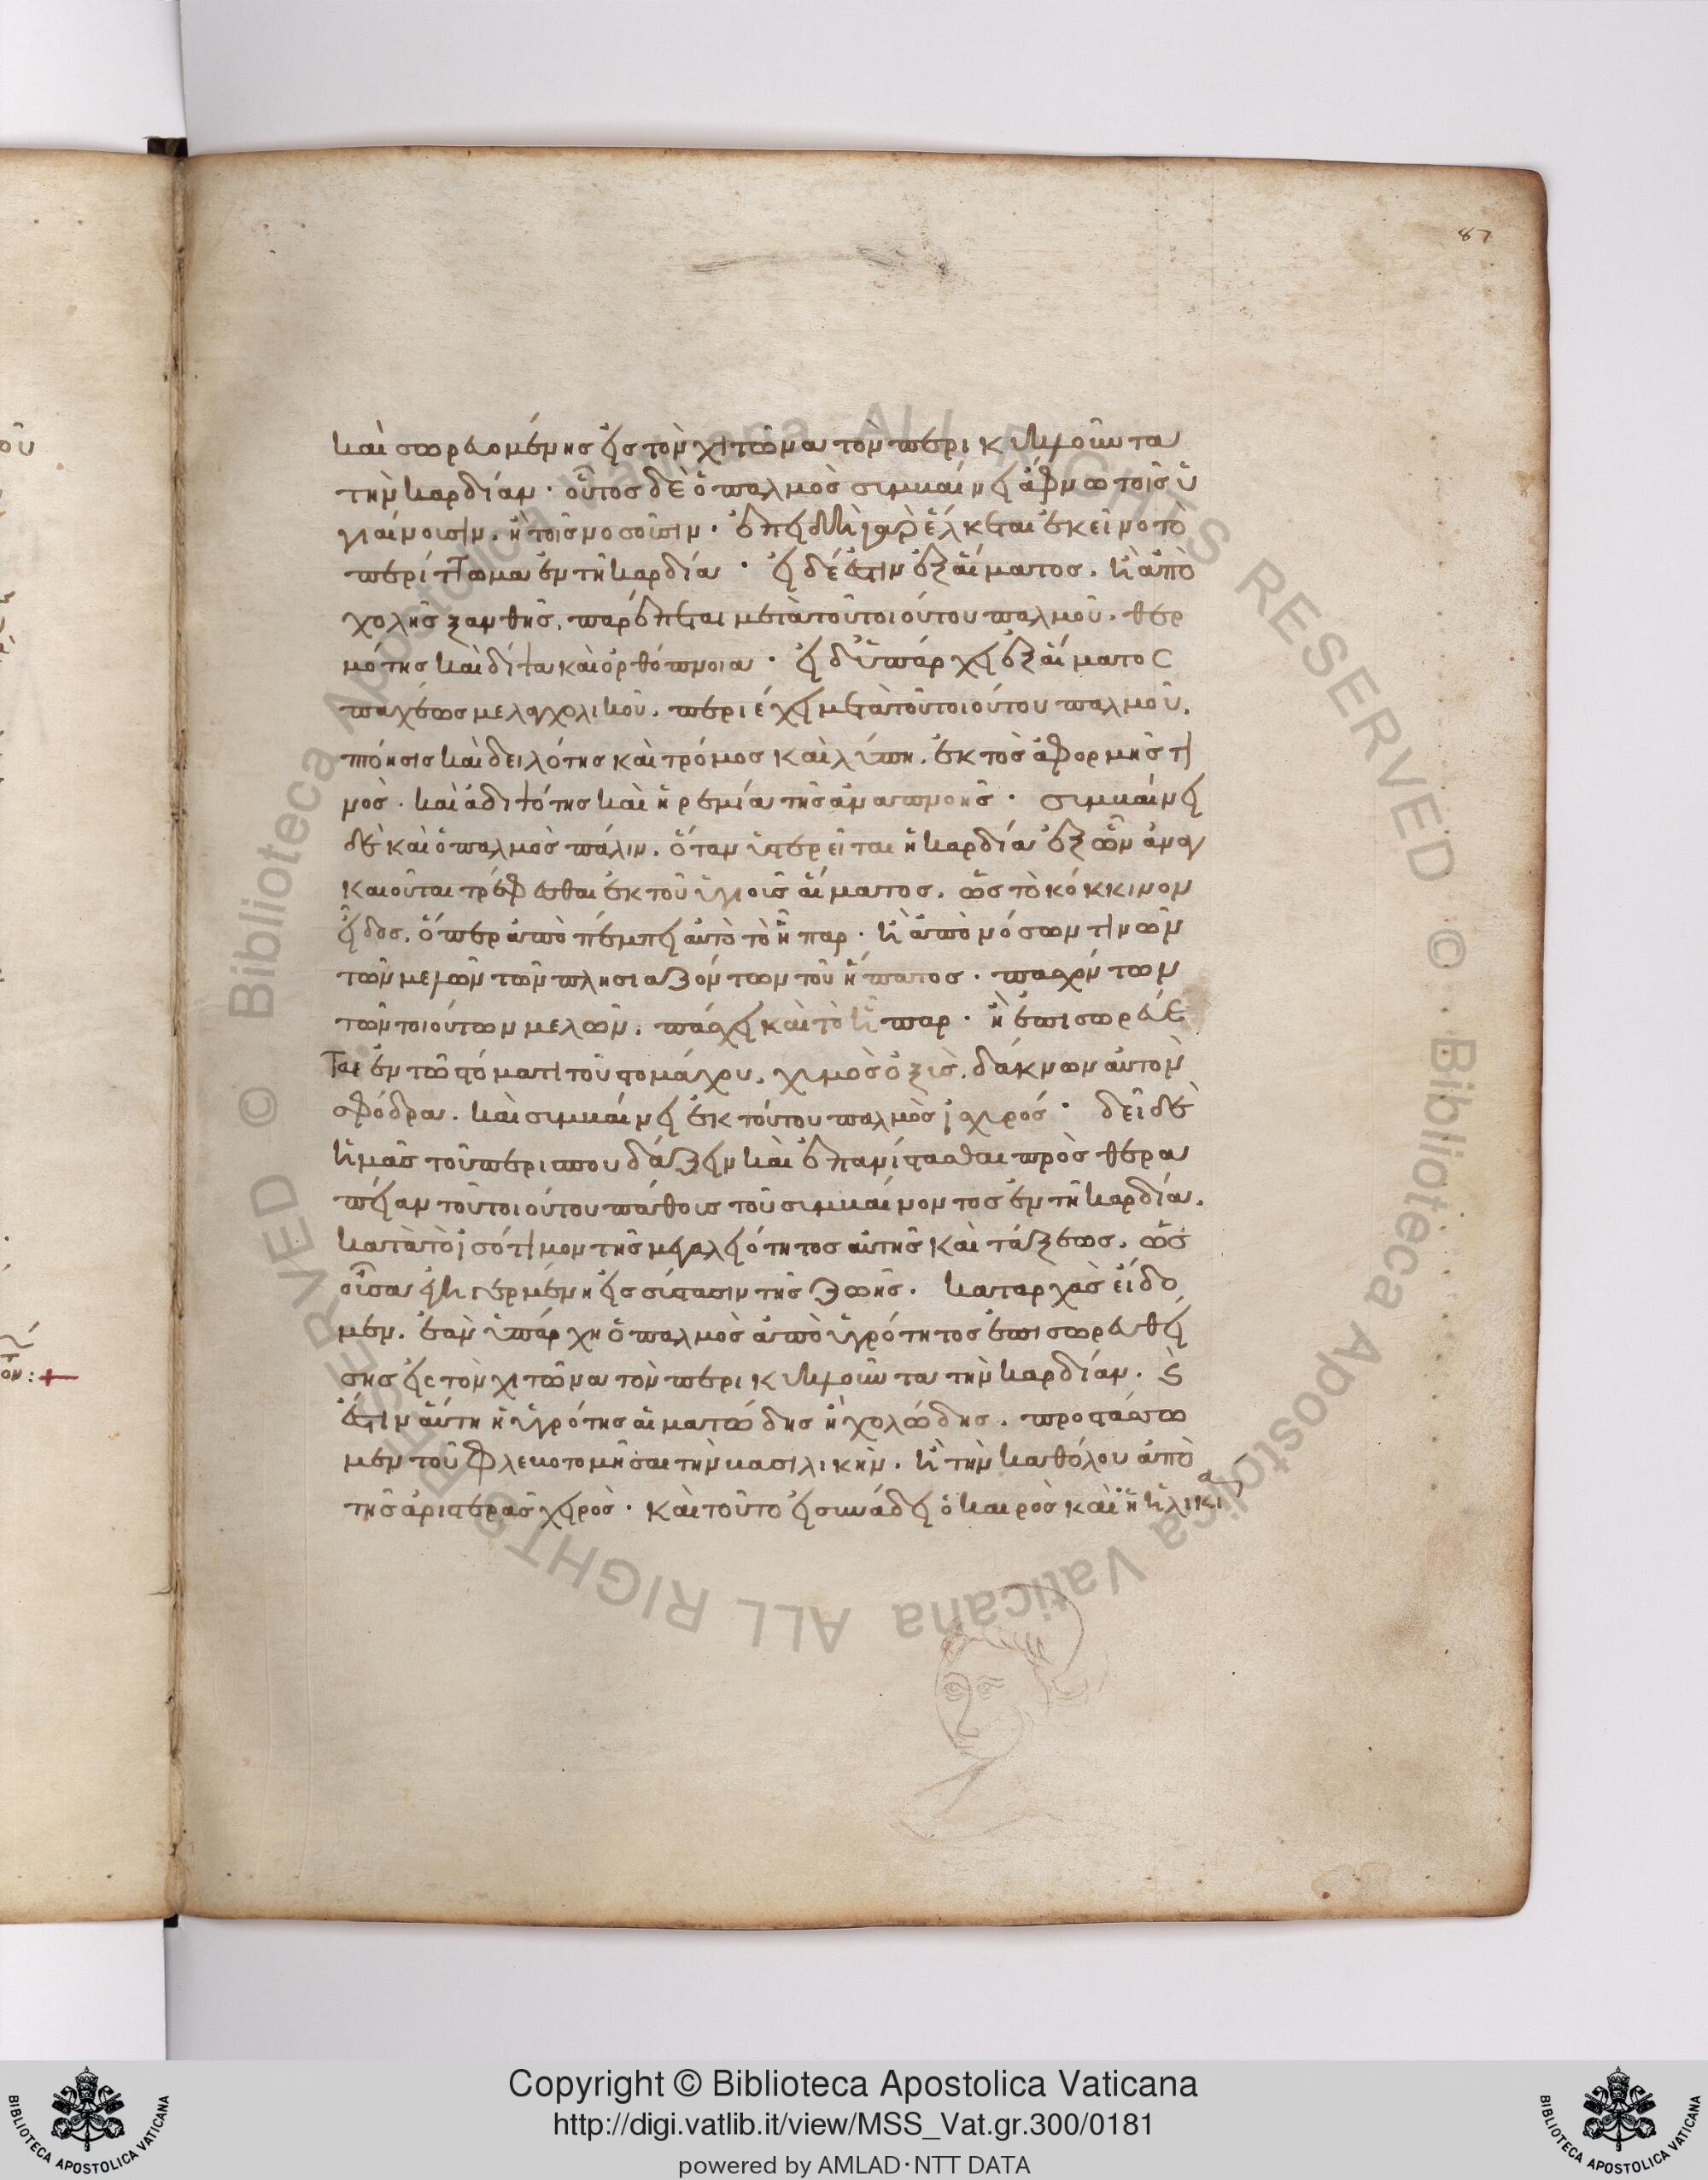 87
καὶ σωρευομένης εἰς τὸν χιτῶνα τὸν περικυκλοῦντα
τὴν καρδίαν · οὗτος δὲ ὁ παλμὸς συμβαίνει ἄφνω τοῖς ὑ
γιαίνουσιν. ἢ τοῖς νοσοῦσιν · ἐπειδὴ γὰρ ἕλκεται ἐκεῖνο τὸ
περίττωμα ἐν τῆ καρδία · εἰ δέ ἐστιν ἐξ αἵματος. ἢ ἀπὸ
χολῆς ξανθῆς, παρέπεται μετὰ τοῦ τοιούτου παλμοῦ. θερ
μότης καὶ δίψα καὶ ὀρθόπνοια · εἰ δ' ὑπάρχει ἐξ αἵματος
παχέως μελαγχολικοῦ. περιέχει μετὰ τοῦ τοιούτου παλμοῦ.
πτόησις καὶ δειλότης καὶ τρόμος καὶ λύπη. ἐκτὸς ἀφορμῆς τι
νὸς · καὶ ἀδιψότης καὶ ἠρεμία τῆς ἀναπνοῆς · συμβαίνει
δὲ καὶ ὁ παλμὸς πάλιν. ὅταν ὑστερεῖται ἡ καρδία ἐξ ὧν ἀναγ
καιοῦται τρέφεσθαι ἐκ τοῦ ὑγιοῦς αἵματος. ὡς τὸ κόκκινον
εἶδος. ὅπερ ἀποπέμπει αὐτὸ τὸ ἧπαρ · ἢ ἀπὸ νόσων τινῶν
τῶν μελῶν τῶν πλησιαζόντων τοῦ ἥπατος · πασχόντων
τῶν τοιούτων μελῶν. πάσχει καὶ τὸ ἧπαρ · ἢ ἐπισωρεύε
ται ἐν τῶ στόματι τοῦ στομάχου. χυμὸς ὀξὺς. δάκνων αὐτὸν
σφόδρα. καὶ συμβαίνει ἐκ τούτου παλμὸς ἰσχυρός · δεῖ δὲ
ἡμᾶς τοῦ περισπουδάζειν καὶ ἐπανίστασθαι πρὸς θερα
πείαν τοῦ τοιούτου πάθους τοῦ συμβαίνοντος ἐν τῆ καρδία.
κατὰ τὸ ἰσότιμον τῆς μεγαλειότητος αὐτῆς καὶ τάξεως. ὡς
οὖσα εἱμαρμένη εἰς σύστασιν τῆς ζωῆς. καταρχὰς εἴδο
μεν. ἐὰν ὑπάρχη ὁ παλμὸς ἀπὸ ὑγρότητος ἐπισωρευθεί
σης εἰς τὸν χιτῶνα τὸν περικυκλοῦντα τὴν καρδίαν. καὶ
ἔστιν αὕτη ἡ ὑγρότης αἱματώδης ἢ χολώδης. προστάσσω
μεν τοῦ φλεβοτομῆσαι τὴν βασιλικὴν. ἢ τὴν καθόλου ἀπὸ
τῆς ἀριστερᾶς χειρὸς · καὶ τοῦτο εἰ συνάδει ὁ καιρὸς καὶ ἡ ἡλικία